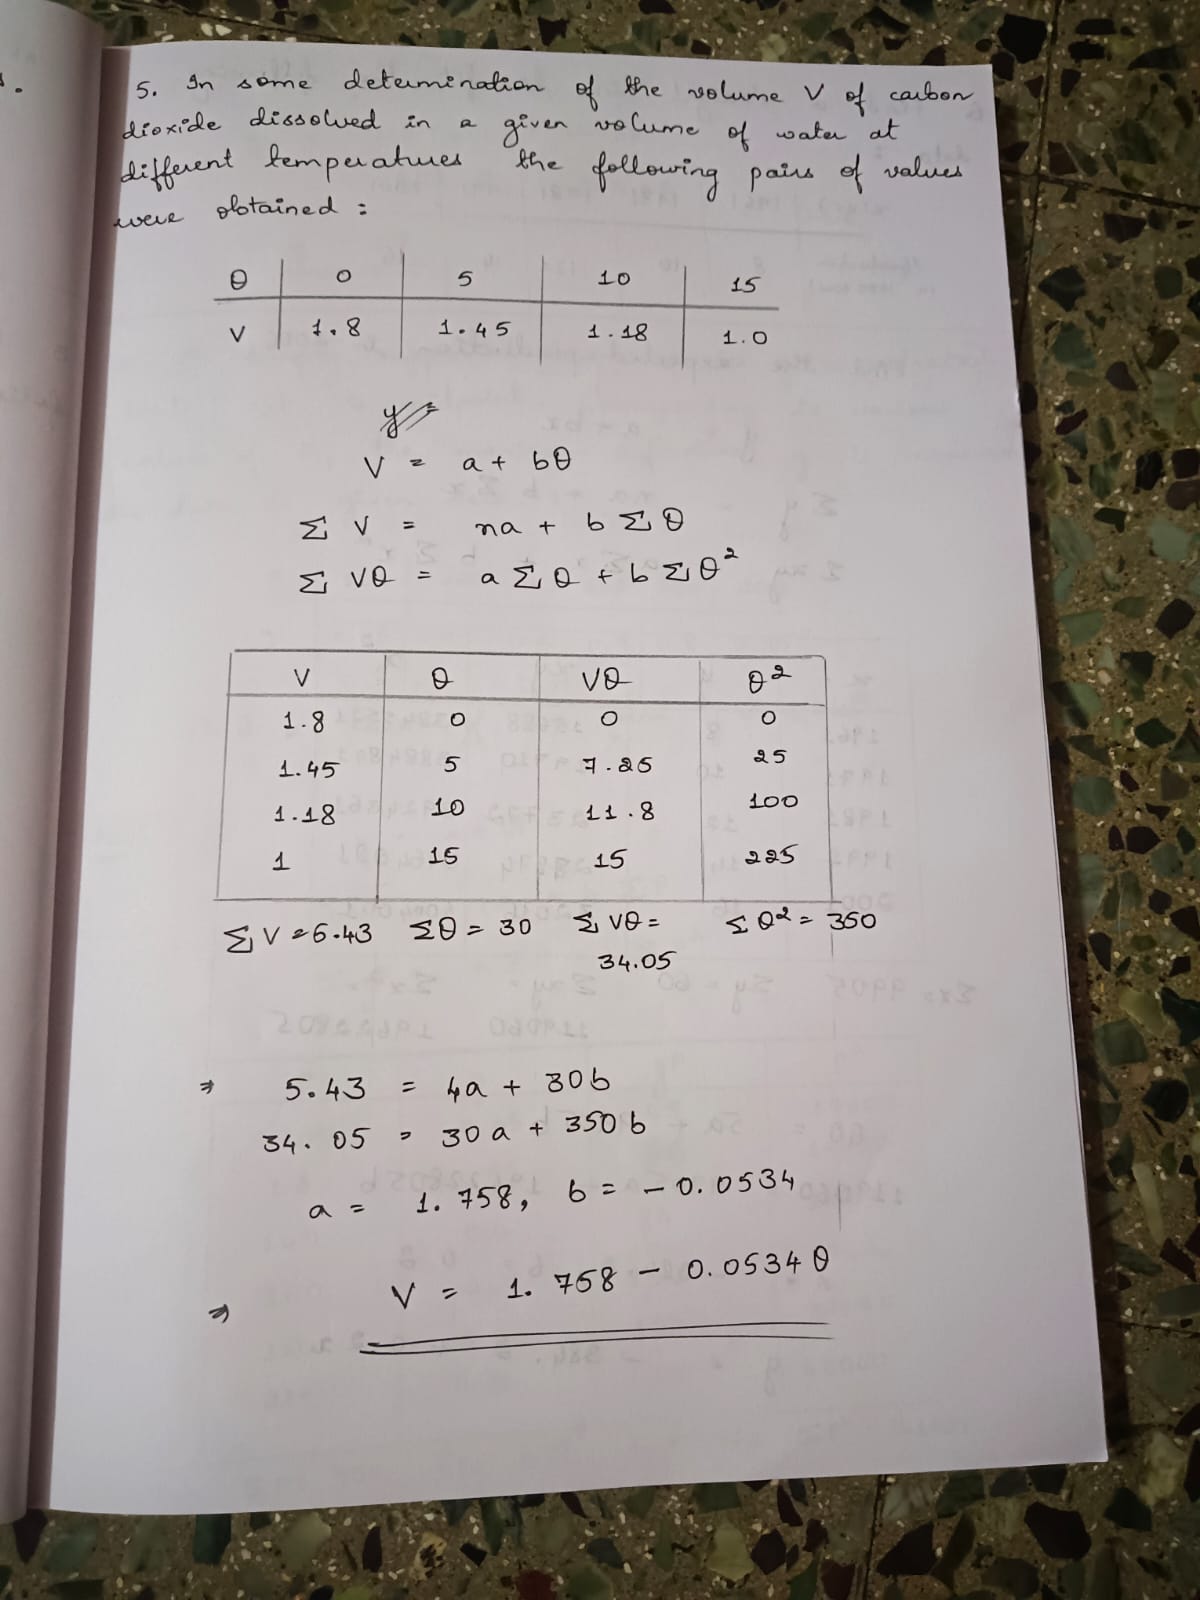 5. In some determination of the volume V of carbon
dioxide dissolved in a given volume of water at
different temperatures the following pairs of values
were obtained :
θ 0 5 10 15
V 1.8 1.45 1.18 1.0
V = a + bθ
Σ V = na + b Σ θ
Σ Vθ = a Σ θ + b Σ θ²
V θ Vθ θ²
1.8 0 0 0
1.45 5 7.25 25
1.18 10 11.8 100
1 15 15 225
Σ V = 5.43 Σθ = 30 Σ Vθ = 34.05 Σ θ² = 350
⇒ 5.43 = 4a + 30b
34.05 = 30a + 350b
a = 1.758, b = - 0.0534
⇒ V = 1.758 - 0.0534 θ